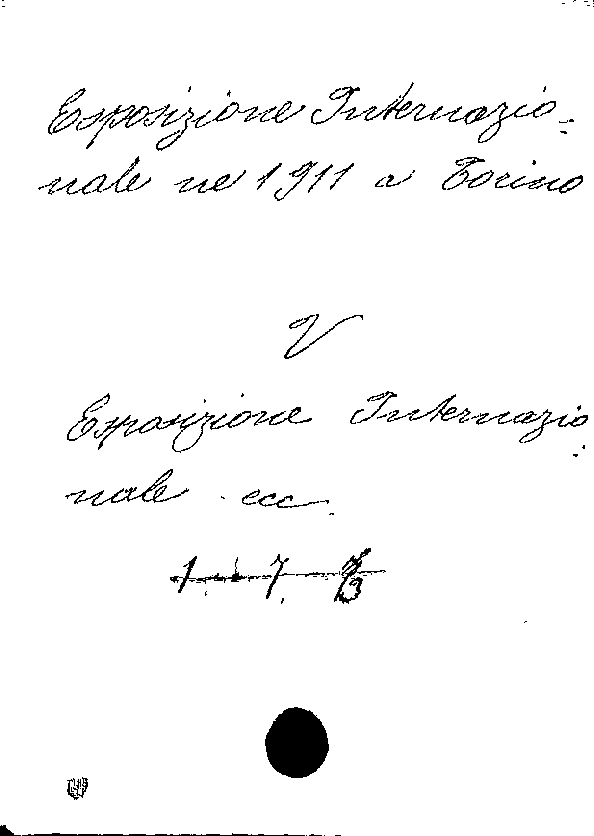 Esposizione Internazio-
nale ne 1911 a Torino
V
Esposizione Internazio
nale ecc.
1 7